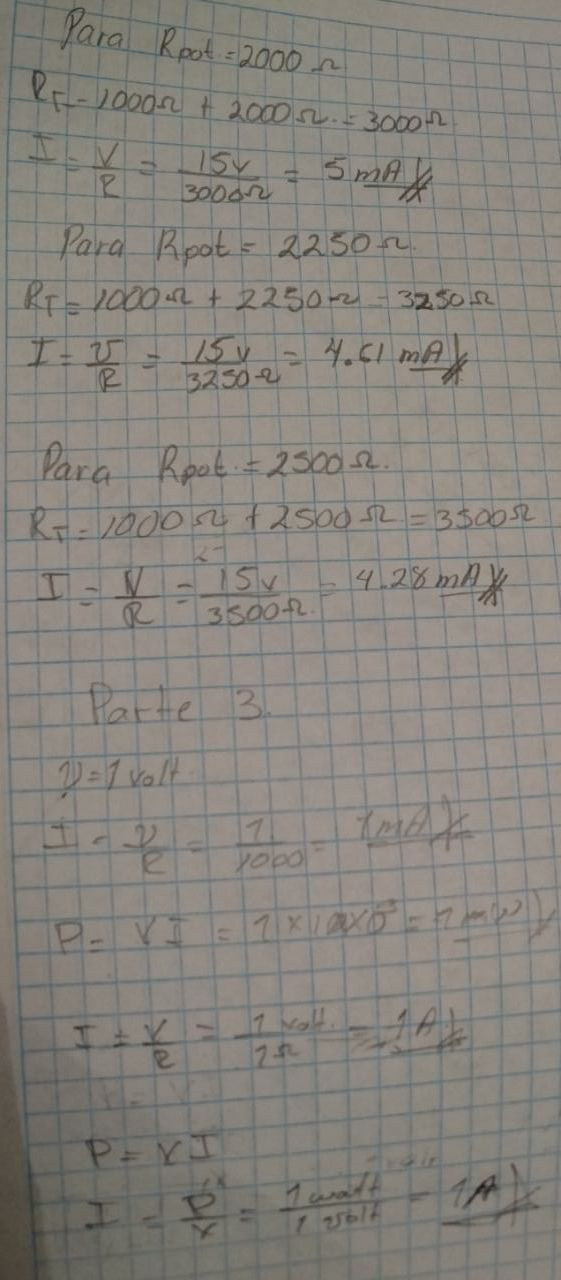 Para Rpot = 2000 Ω
RT = 1000Ω + 2000Ω. = 3000Ω.
I = V/R = 15v/3000Ω = 5 mA
Para Rpot = 2250 Ω.
RT = 1000Ω + 2250Ω = 3250Ω
I = V/R = 15v/3250Ω = 4.61 mA
Para Rpot. = 2500Ω.
RT = 1000Ω + 2500Ω = 3500Ω
I = V/R = 15v/3500Ω. = 4.28 mA
Parte 3.
V = 1 volt.
I = V/R = 1/1000 = 1mA
P = VI =
I = V/R = 1 volt./1Ω = 1A
P = VI
I = P/V = 1 watt/1 volt = 1A